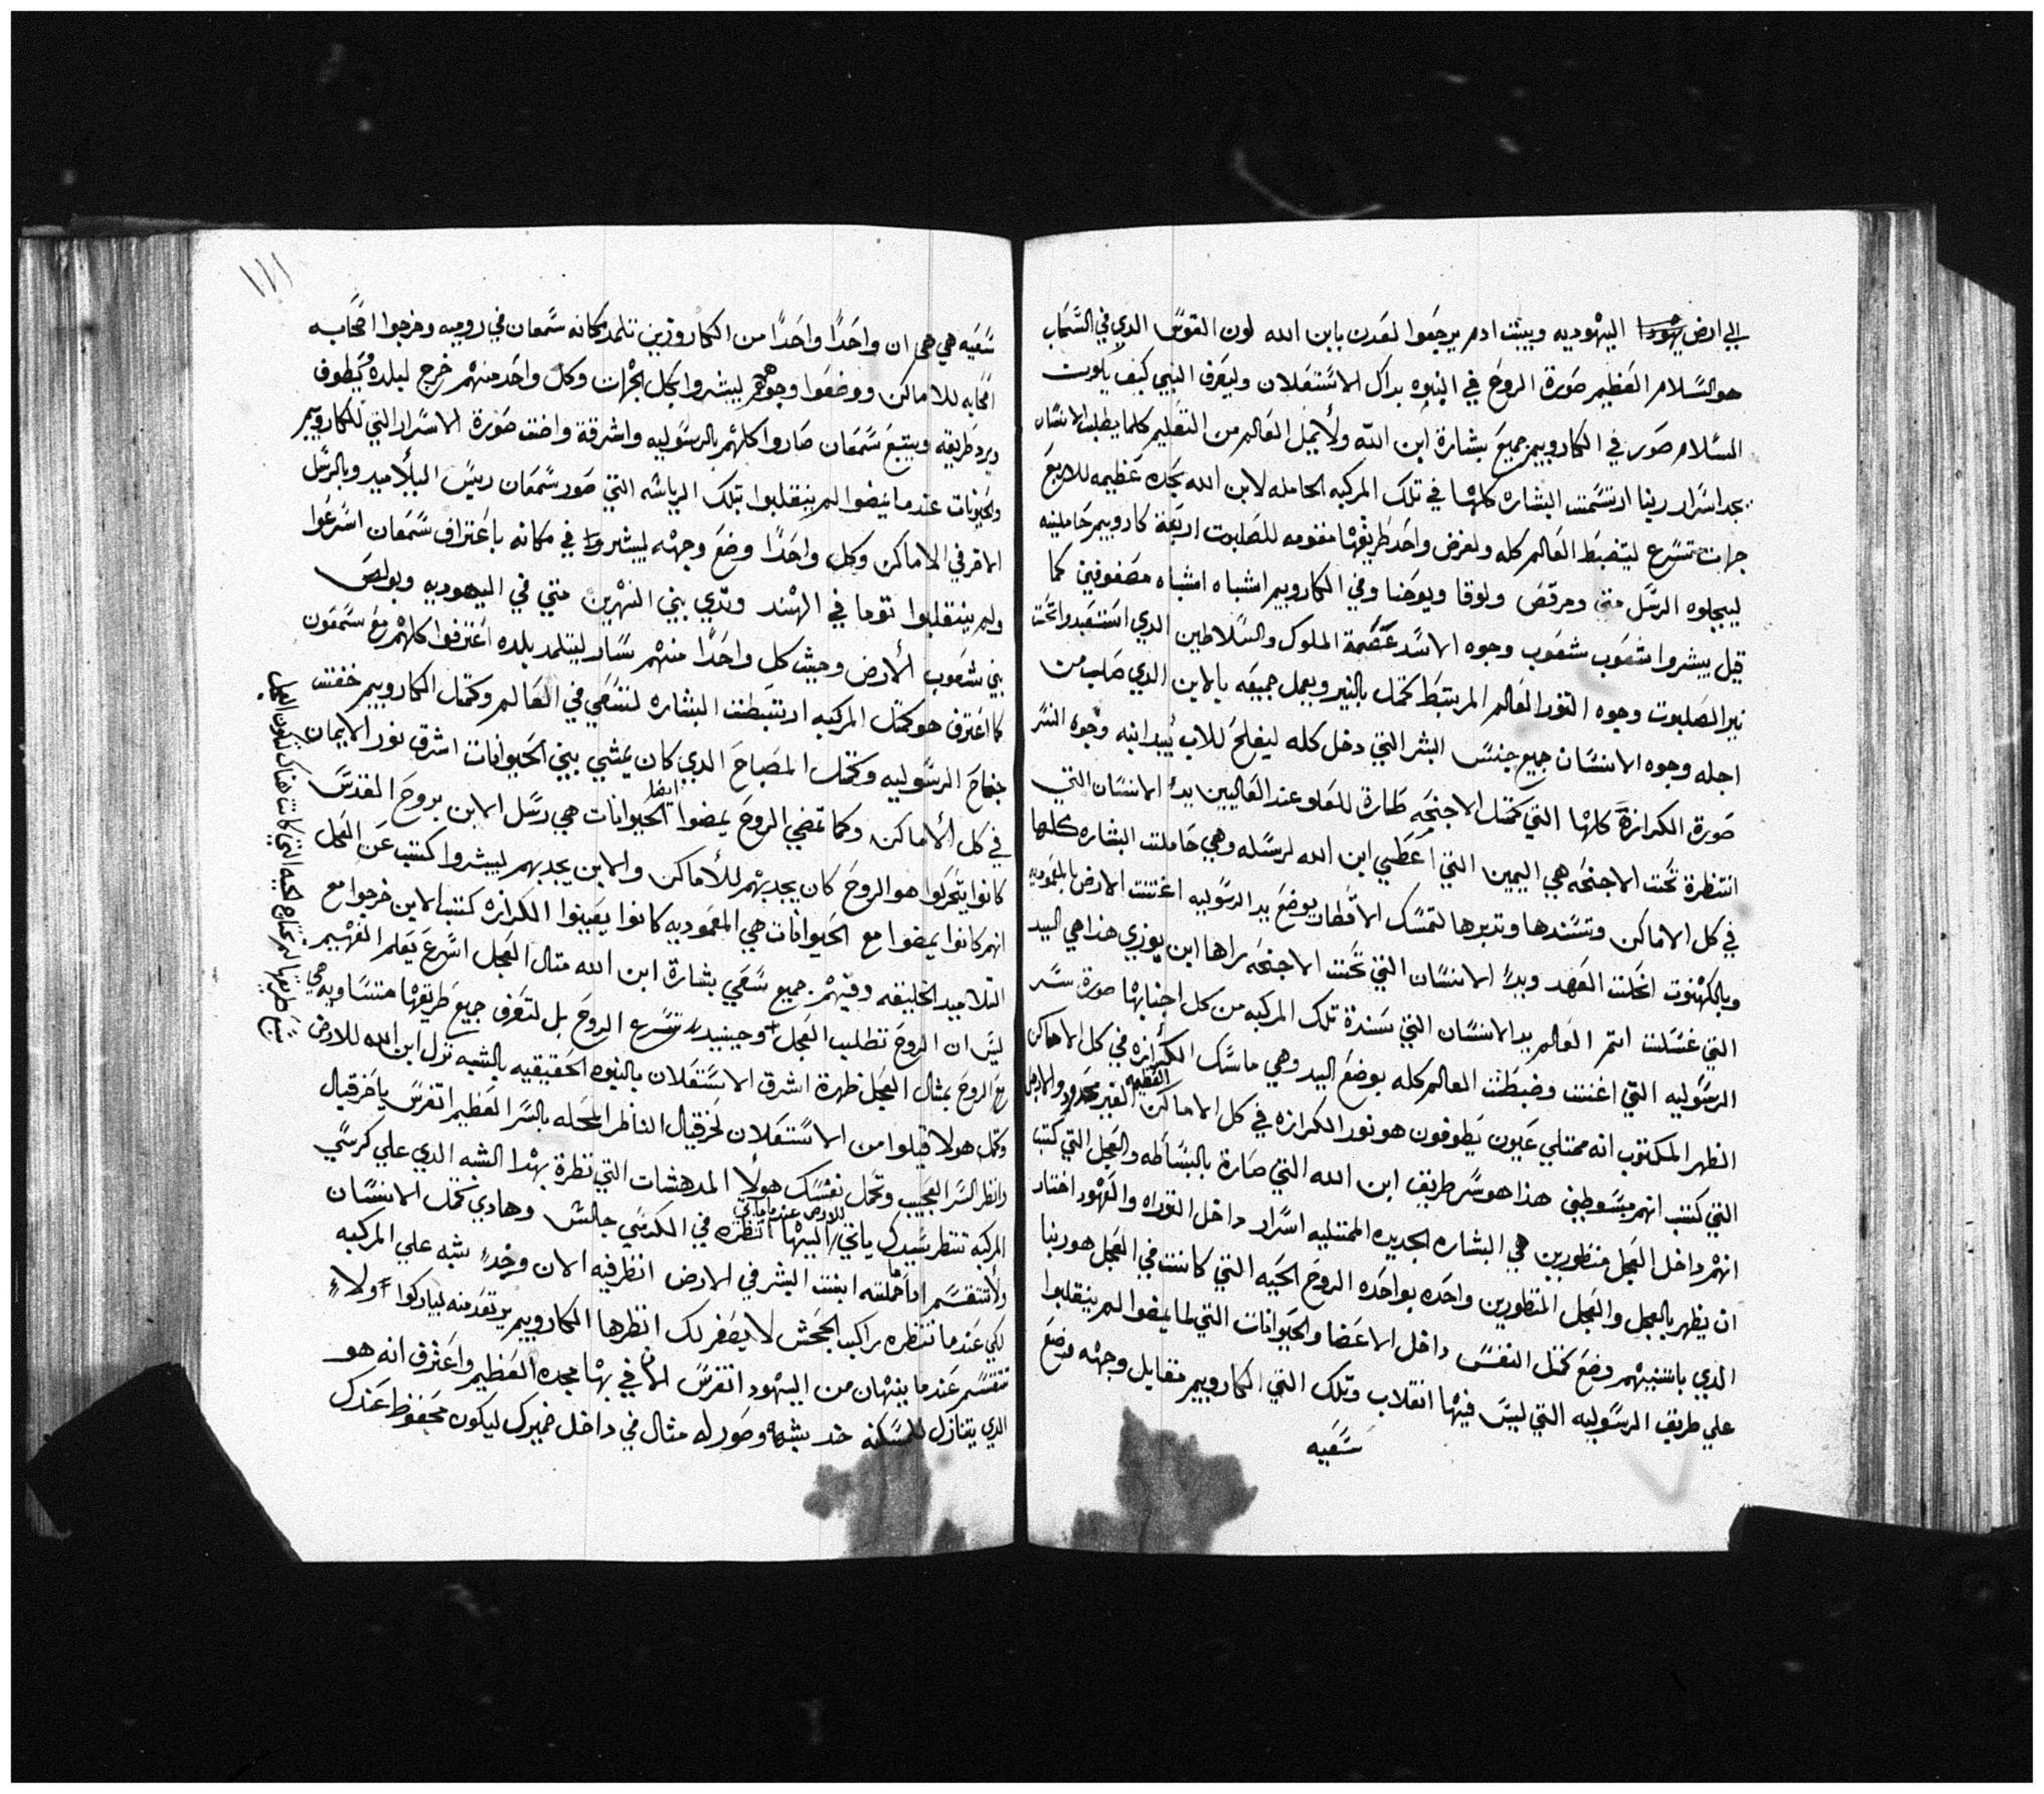 الي ارض يهودا اليهوديه وببنت ادم يرجعوا لعدن بابن الله لون القوس الدي في السحاب
هو السلام العظيم صورة الروح في النبوه بداك الاستعلان وليعرف النبي كيف يكون
السلام صور في الكاروبيم جميع بشارة ابن الله ولا يمل العالم من التعليم كلما يطلب الانسان
يجد اسرار ربنا ارتسمت البشاره كلها في تلك المركبه الحامله لابن الله بجده عظيمه للاربع
جهات تسرع لينضبط العالم كله ولغرض واحد طريقها مقومه للصلبوت اربعة كاروبيم حاملينه
ليبجلوه الرسل متي ومرقص ولوقا ويوحنا وفي الكاروبيم اشباه اشباه مصفوفين كما
قيل يبشروا شعوب شعوب وجوه الاسد عصمة الملوك والسلاطين الدي استعبدوا تحت
نير الصلبوت وجوه التور العالم المرتبط كمتل بالنير ويعمل جميعه بالابن الدي صلب من
اجله وجوه الانسان جميع جنس البشر التي دخل كله ليفلح للاب بيد ابنه وجوه النسر
صورة الكرازة كلها التي كمتل الاجنحه طارة للعلو عند العاليين يد الانسان التي
انتظرة تحت الاجنحه هي اليمين التي اعطي ابن الله لرسله وهي حاملت البشاره كلها
في كل الاماكن وتسندها وتدبرها لتمسك الاقطار بوضع يد الرسوليه اغتنت الارض بالمعموديه
وبالكهنوت انحلت العهد ويد الانسان التي تحت الاجنحه راها ابن بوزي هذا هي اليد
التي غسلت اتم العالم يد الانسان التي سندة تلك المركبه من كل اجنابها صورة سر
الرسوليه التي اغنت وضبطت العالم كله بوضع اليد وهي ماسك الكرازه في كل الاماكن
الظهر المكتوب انه ممتلي عيون يطوفون هو نور الكرازه في كل الاماكن العظيمه الغير محدود والارض
التي كتب انهم مبسوطين هذا هو سر طريق ابن الله التي صارة بالبساطه والعجل التي كتب
انهم داخل العجل منظورين هي البشاره الجديده الممتليه اسرار داخل التوراه والعهود اختار
ان يظهر بالعجل والعجل المنظورين واحده بواحده الروح الحيه التي كانت في العجل هو ربنا
الدي باشتهم وضع كمتل النفس داخل الاعضا والحيوانات التي لما يمضوا لم ينقلبوا
علي طريق الرسوليه التي ليس فيها انقلاب وتلك التي الكاروبيم مقابل وجهه موضع
سعيه
١١١
سعيه هي هي ان واحدا واحدا من الكاروزين تلمد مكانه سمعان في روميه وخرجوا اصحابه
اصحابه للاماكن ووضعوا وجوههم ليبشروا بكل الجهات وكل واحد منهم خرج لبلده يطوف
ويرد طريقه ويتبع سمعان صاروا كلهم بالرسوليه واشرقة واضت صورة الاسرار التي للكاروبيم
والحيونات عندما يمضوا لم ينقلبوا تلك الرياسه التي صور سمعان ريس التلاميد وبالرسل
الاخر في الاماكن وكل واحدا وضع وجهه ليبشروا في مكانه باعتراف سمعان اسرعوا
ولم ينقلبوا توما في الهند وتدي بين النهرين متي في اليهوديه وبولص
بين شعوب الارض وحيت كل واحدا منهم سار ليتلمد بلده اعترفوا كلهم مع سمعون
كما اعترف هو كمتل المركبه ارتبطت البشاره لتسعي في العالم وكمتل الكاروبيم خفقت
جناح الرسوليه وكمتل المصباح الدي كان يمشي بين الحيوانات اشرق نور الايمان
في كل الاماكن وكما تمضي الروح يمضوا ايضا الحيوانات هي رسل الابن بروح المقدس
كانوا يتحركوا هو الروح كان يجدبهم للاماكن والابن يجدبهم ليبشروا كتب عن العجل
انهم كانوا يمضوا مع الحيوانات هي المعموديه كانوا يعينوا الكرازه كتب الابن خرجوا مع
التلاميد الخليقه وفيهم جميع سعي بشارة ابن الله متال العجل اسرع يعلم الفهيم
ليس ان الروح تطلب العجل وحينيد تسرع الروح بل لتعرف جميع طريقها متساويه هي
مع الروح بمثال العجل ظهرة اشرق الاستعلان بالنبوه الحقيقيه بالشبه نزل ابن الله للارض
وكمل هولا قبلوا من الاستعلان لحزقيال الناظر المحله بالسر العظيم اتفرس يا حزقيال
وانظر السر العجيب وتحمل نفسك هولا المدهشات التي نظرة بهدا الشبه الدي علي كرسي
المركبه تنتظر سيدك ياتي للارض عندما ياتي اليها انظره في الكرسي جالس وهادي كمتل الانسان
ولا تنقسم اداحملته ابنت البشر في الارض انظر فيه الان وخد شبه علي المركبه
لكي عندما تنظره راكب الجحش لا يصغر لك انظرها الكاروبيم يرتعد منه ليباركوا ولا
تنقسم عندما ينهان من اليهود اتفرس الان في بها مجده العظيم واعترف انه هو
الدي يتنازل للمسكنه خد شبهه وصوره مثال في داخل ضميرك ليكون محفوظ عندك